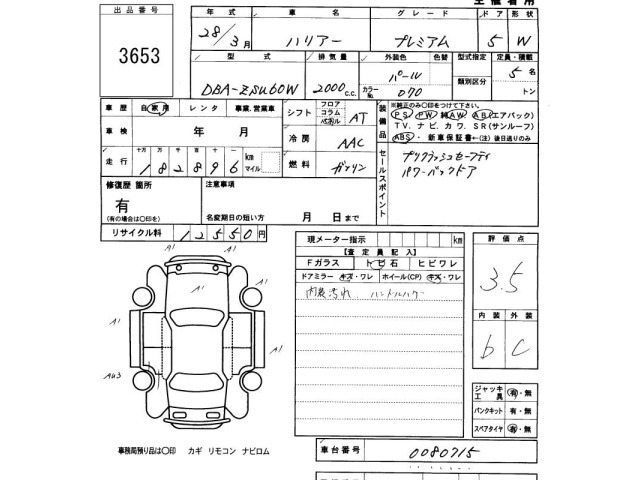 出品番号
3653
年式 車名 グレード ドア 形状
28/3月 ハリアー プレミアム 5 W
型式 排気量 外装色 色替 型式指定 定員・積載
DBA-ZSU60W 2000c.c. パール 5名
カラーNo. 070 類別区分 トン
車歴 自家用 レンタ 事業.営業車
車検 年 月
走行 十万 万 千 百 十
182896 km マイル
シフト フロア コラム AT
冷房 AAC
燃料 ガソリン
装備品
※純正のみ〇印をつけて下さい。
PS PW 純AW AB(エアバック)
TV. ナビ. カワ. SR(サンルーフ)
ABS・新車保証書←(注)後日送りのみ
セールスポイント
プリクラッシュセーフティ
パワーバックドア
修復歴 箇所
有
(有の場合は〇印を)
注意事項
名変期日の短い方 月 日まで
リサイクル料 12550円
現メーター指示 km
【査定員記入】
Fガラス トビ石 ヒビワレ
ドアミラー キズ・ワレ ホイール(CP) キズ・ワレ
内装汚れ. ハンドルハゲ
評価点
3.5
内装 外装
b C
ジャッキ工具 有・無
パンクキット 有・無
スペアタイヤ 有・無
A1
A1
A1
A1
A1
A1
AU3
事務局預り品は〇印 カギ リモコン ナビロム
車台番号 0080715